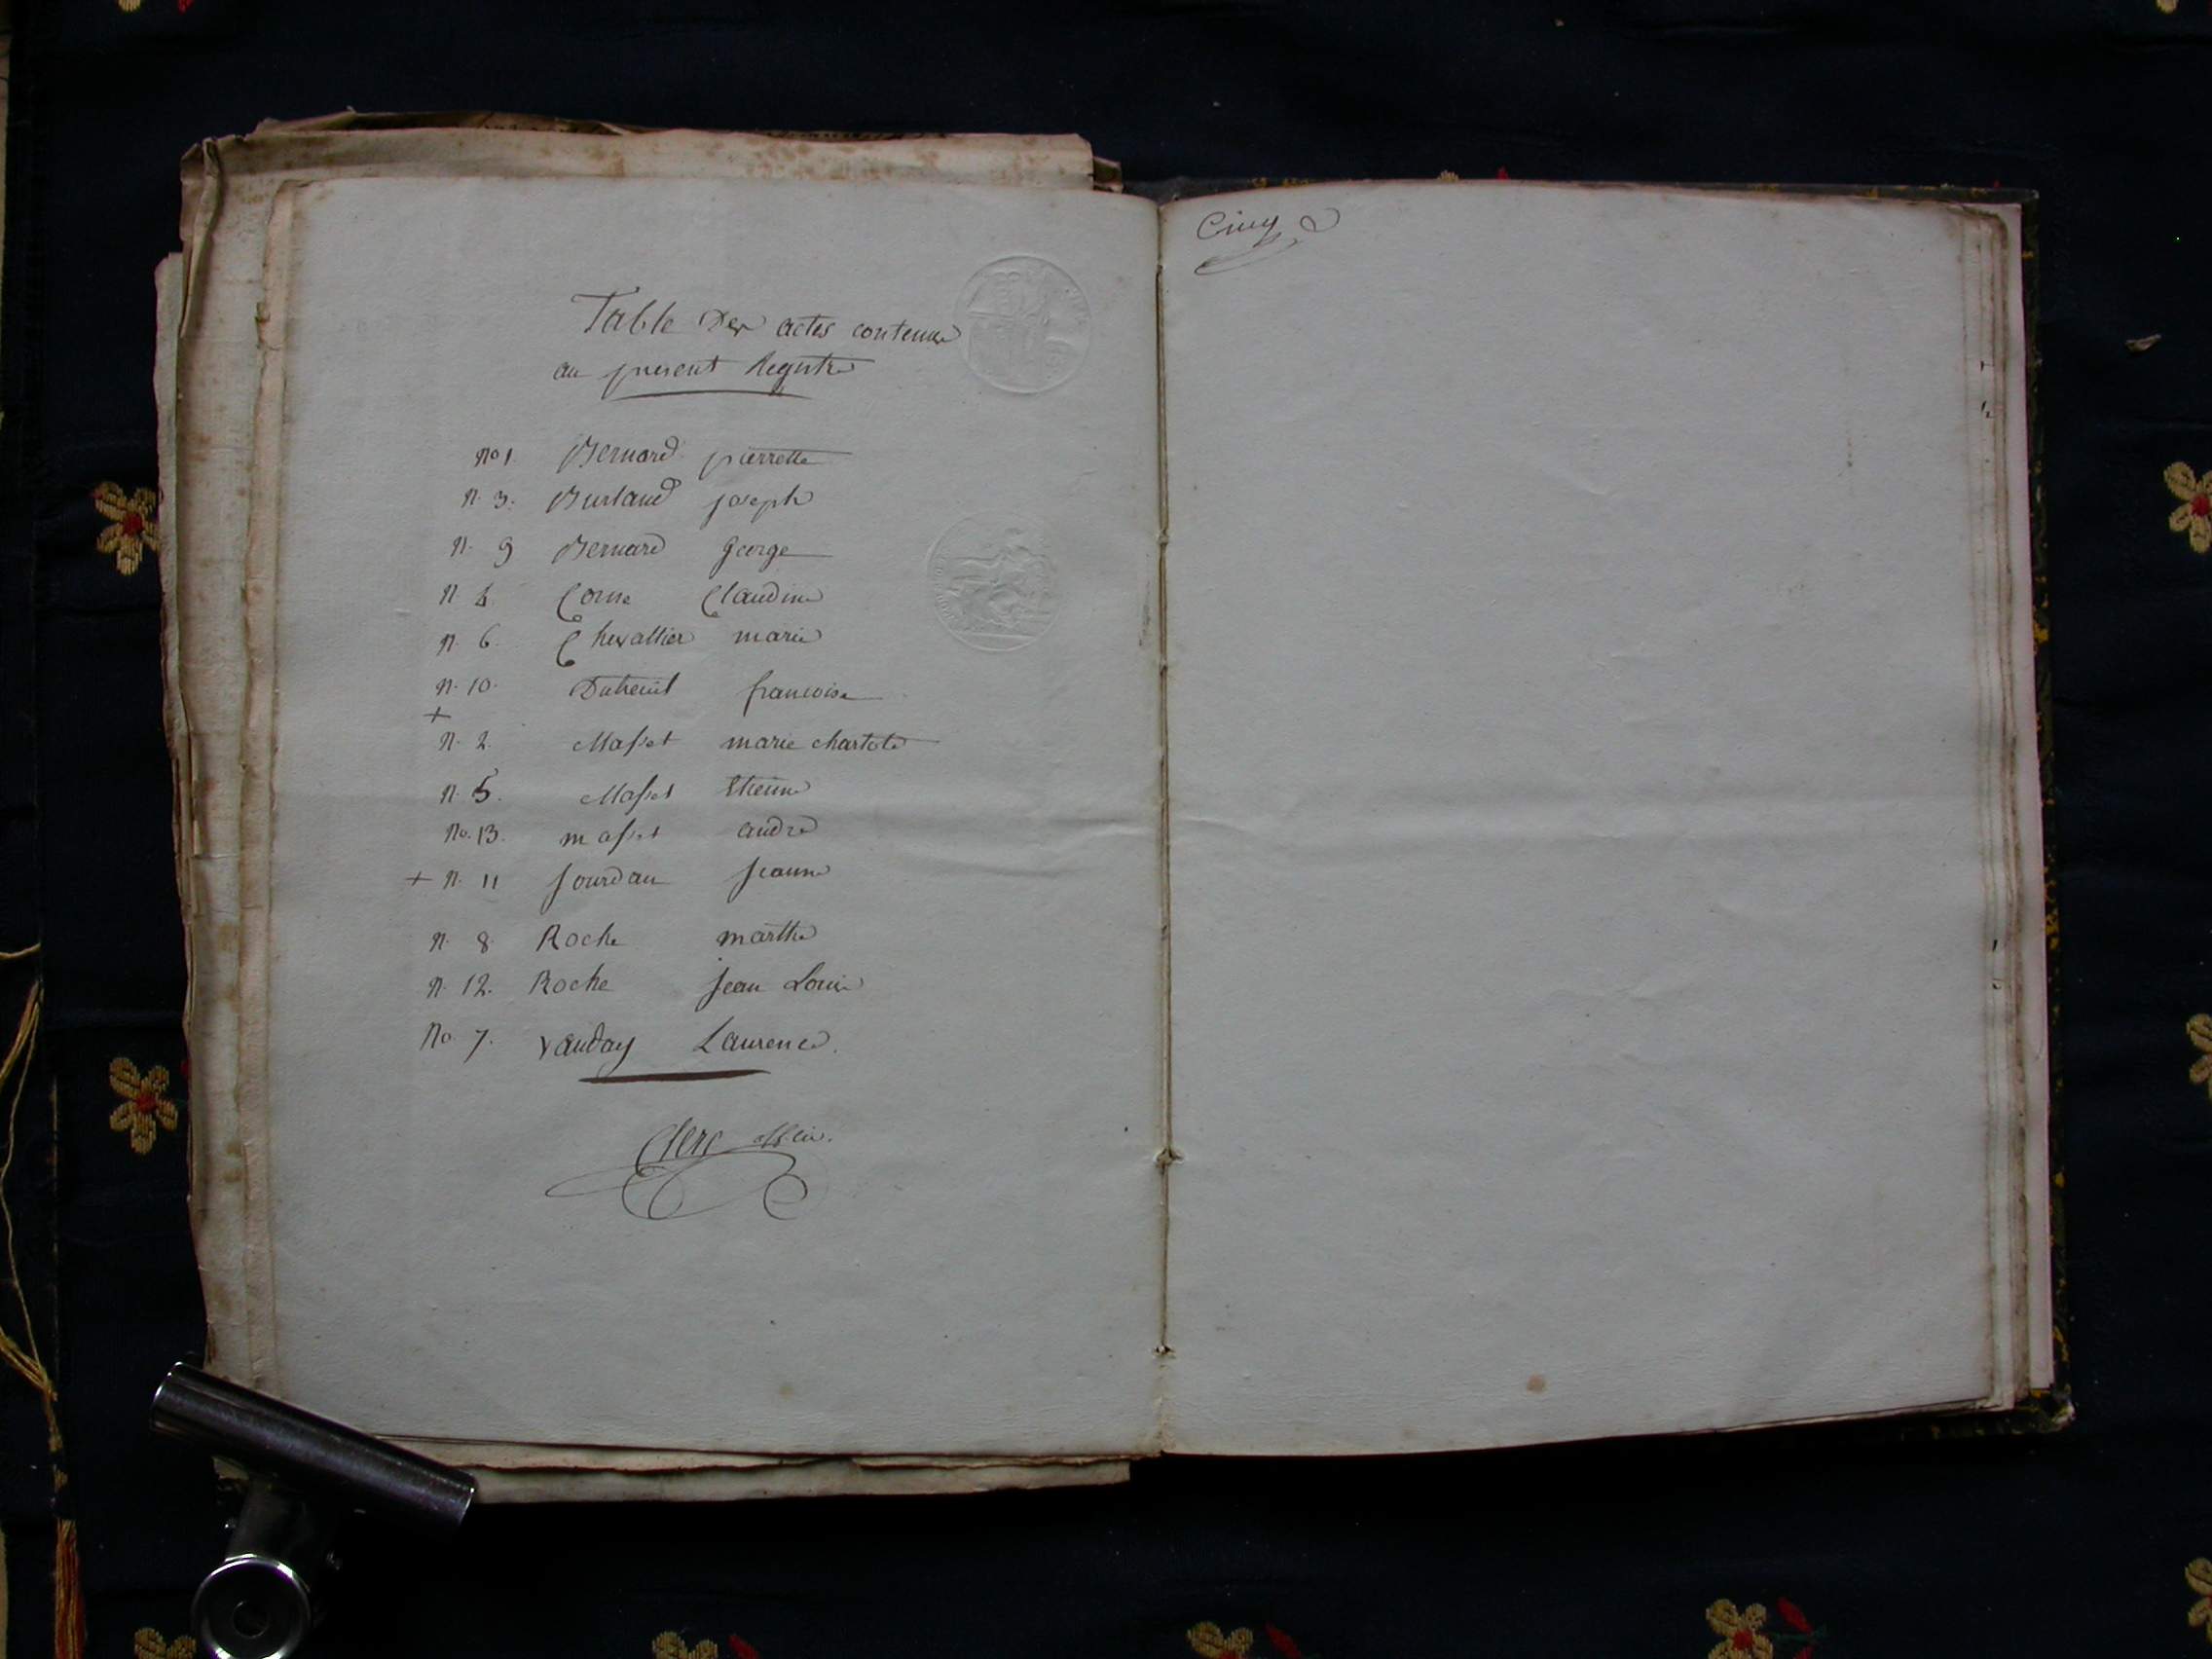 Table Des actes contenus
au present Registre
no 1. Bernard pierrette
n. 3. Burtaud joseph
n. 9 Bernard george
n. 4. Corne Claudine
n. 6. Chevallier marie
n. 10. Dutreuil francoise
+
n. 2. Masset marie charlote
n. 5. Masset Etienne
no. 13. masset andré
+ n. 11 Jourdan Jeanne
n. 8. Roche marthe
n. 12. Roche jean Louis
No 7. vauday Laurence.
Clerc
Cinq